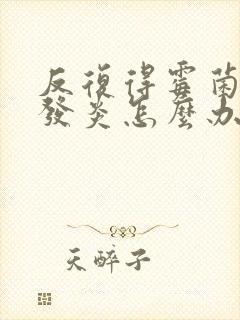 反復得霉菌
發炎怎麼办
天醉子